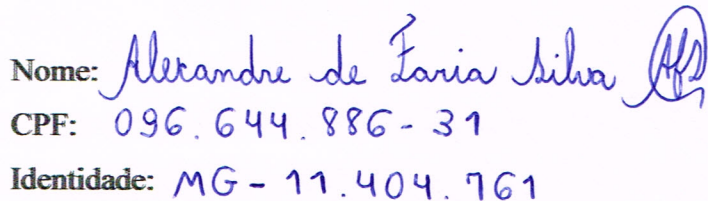 Nome: Alexandre de Faria Silva AFS
CPF: 096.644.886-31
Identidade: MG-11.404.761